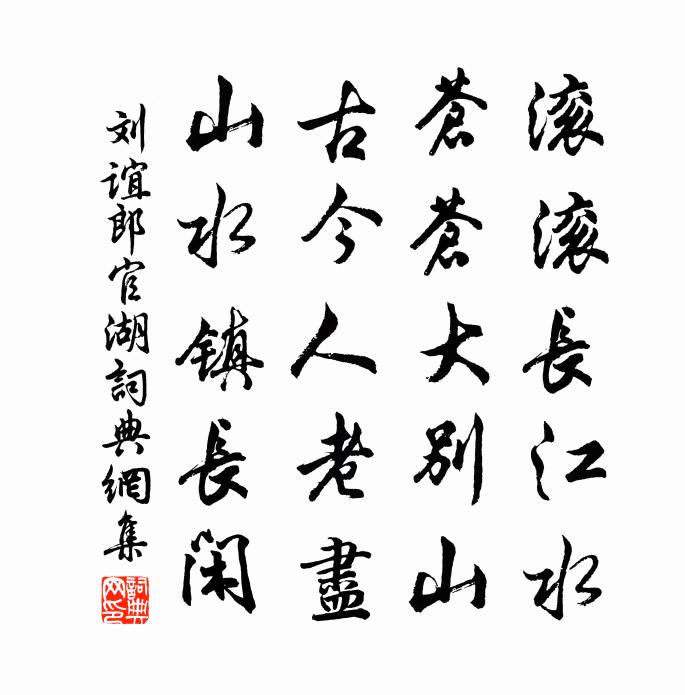 滚滚長江水
蒼蒼大別山
古今人老盡
山水鎮長閑
刘誼郎官湖詞典網集
詞典網印